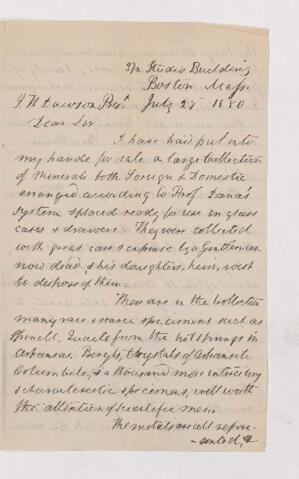 Studio Building
Boston Mass
J W Dawson Prest July 27 1880
Dear Sir
I have had put into
my hands for sale a large Collection
of Minerals both Foreign & Domestic
arranged according to Prof. Dana's
System & placed ready for use in glass
cases & drawers. They were collected
with great care & expense by a Gentleman
now dead, & his daughters, heirs, wish
to dispose of them.
There are in the Collection
many rare & scarce specimens such as
Spinell, Quartz from the hot springs in
Arkansas. Beryls, Crystals of
Columbite, & a thousand more interesting
& characteristic specimens, well worth
the attention of Scientific men.
The metals are all repre-
-sented, &